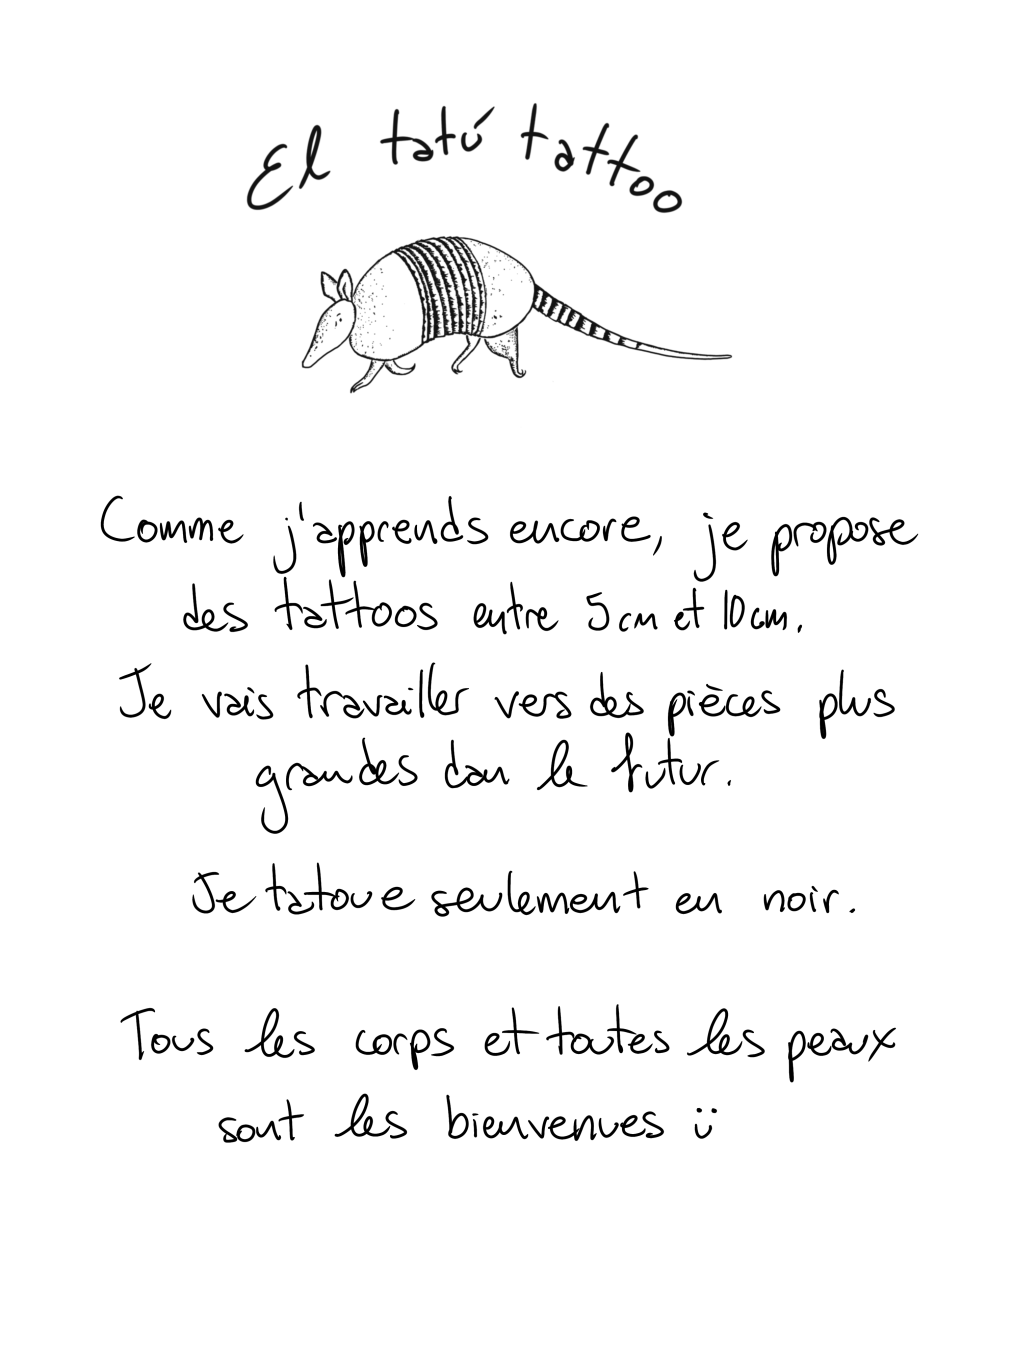 El tatú tattoo
Comme j'apprends encore, je propose
des tattoos entre 5cm et 10cm.
Je vais travailler vers des pièces plus
grandes dan le futur.
Je tatoue seulement en noir.
Tous les corps et toutes les peaux
sont les bienvenues ü